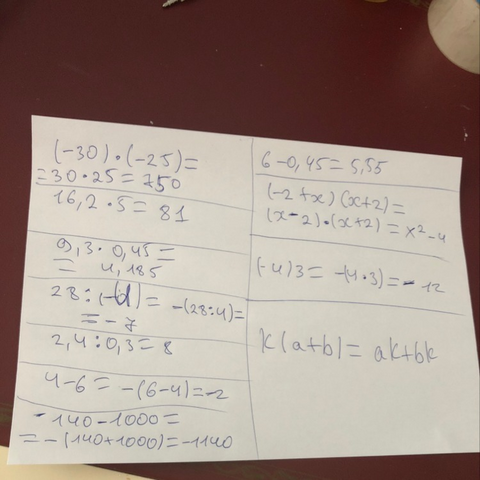 (-30)·(-25)=
=30·25=750
16,2·5=81
9,3·0,45=
= 4,185
28:(-4)= -(28:4)=
= -7
2,4:0,3=8
4-6= -(6-4)=-2
-140-1000=
=-(140+1000)=-1140
6-0,45=5,55
(-2+x)(x+2)=
(x-2)·(x+2)=x²-4
(-4)3= -(4·3)=-12
k(a+b)= ak+bk